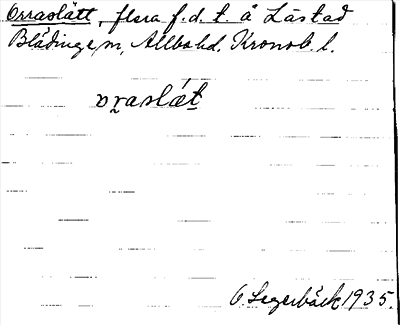 Orraslätt, flera f.d. t. å Låstad
Blädinge sn, Allbo hd, Kronob. l.
ɷraslǽt
O. Segerbäck 1935.